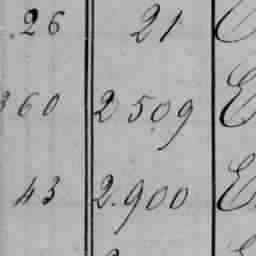 .26 21
360 2.509
43 2.900